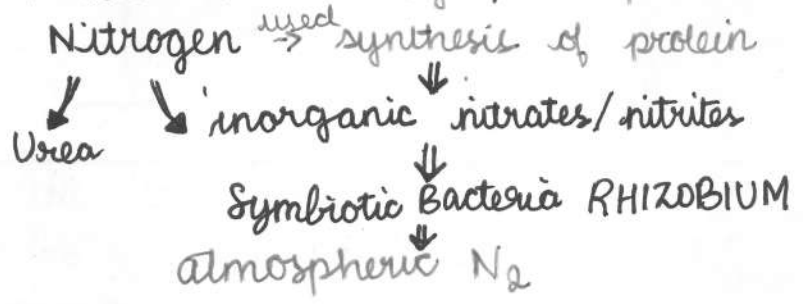 Nitrogen used → synthesis of protein
Urea
inorganic nitrates/nitrites
Symbiotic Bacteria RHIZOBIUM
atmospheric N₂